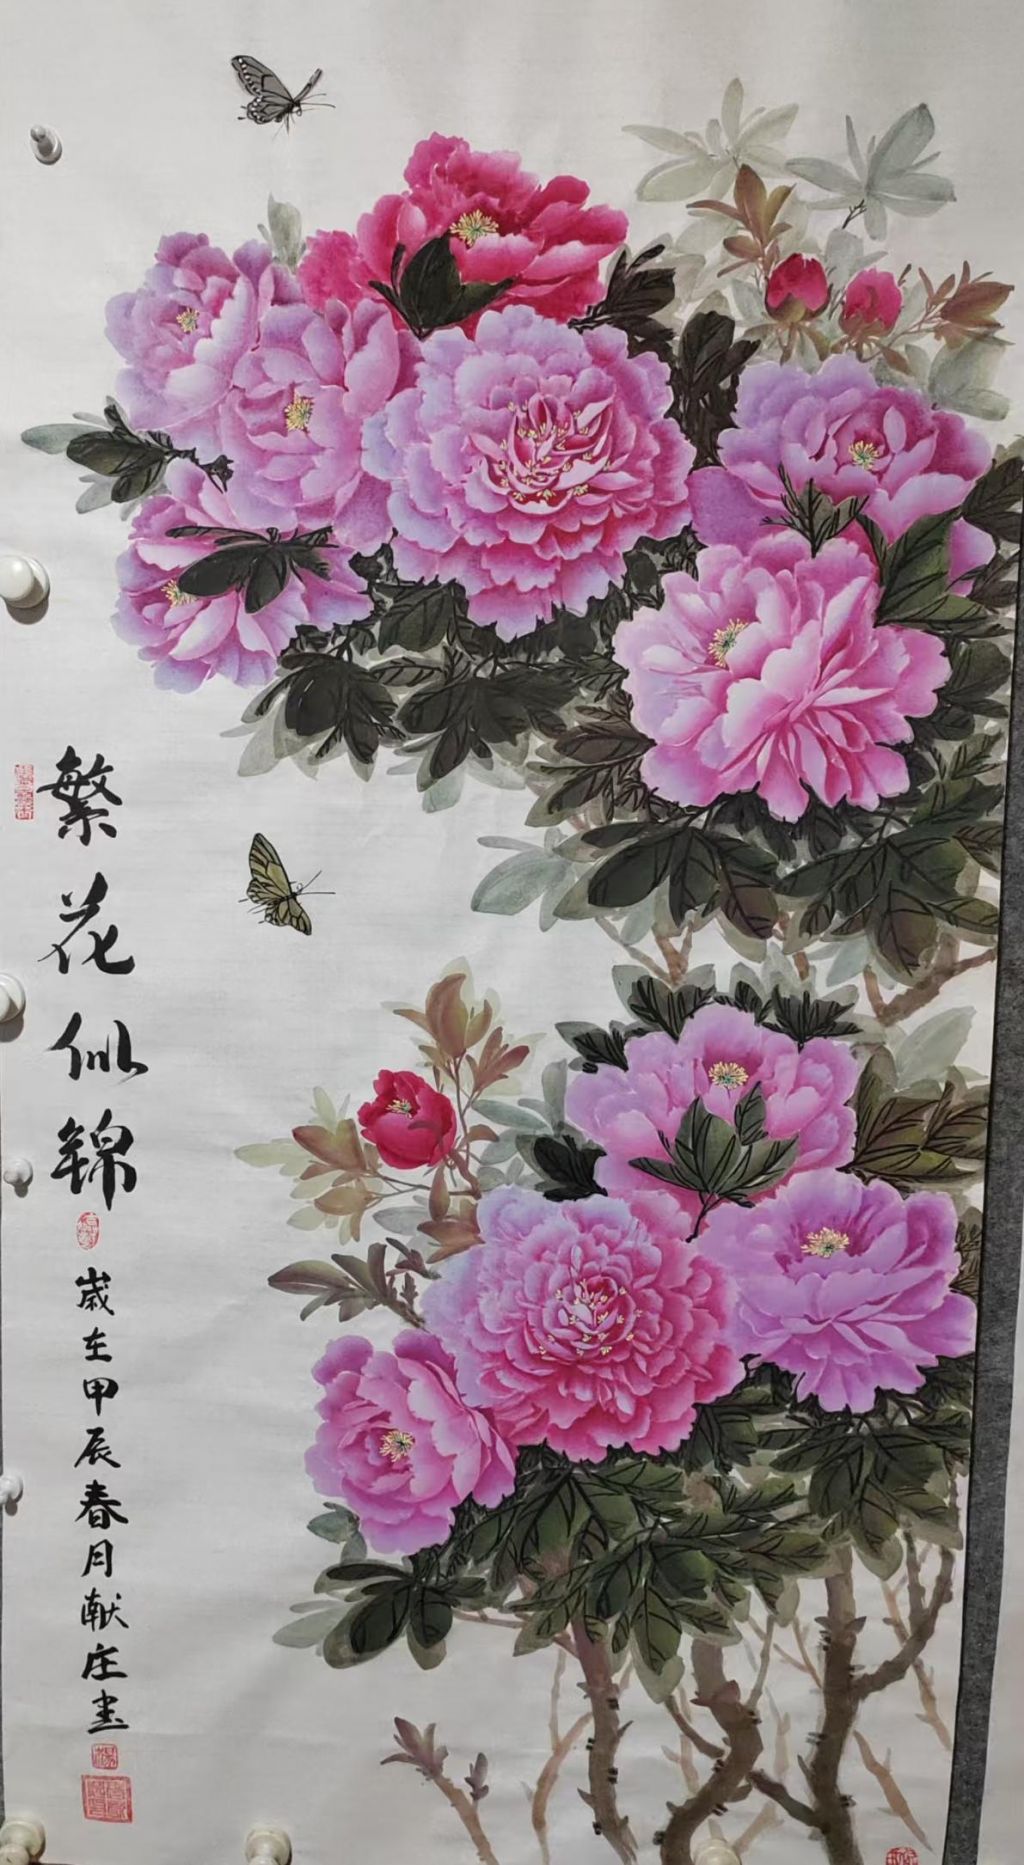 繁花似锦
歳在甲辰春月献庄画